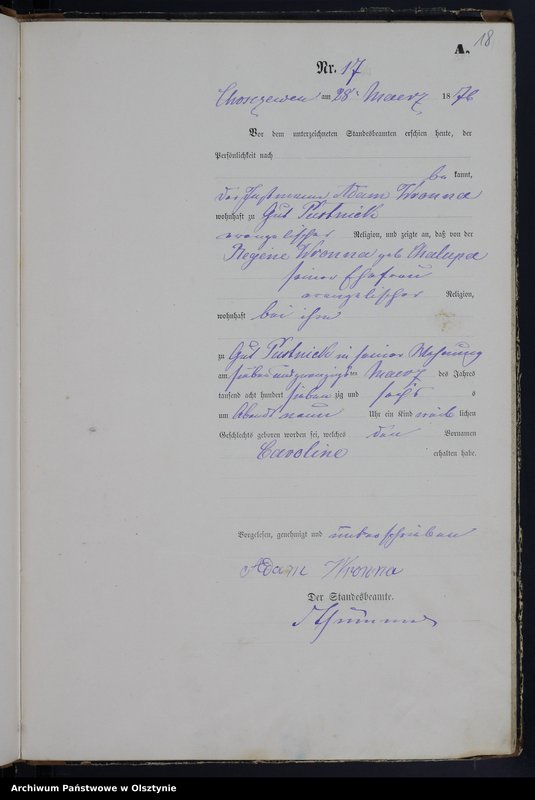 18
A.
Nr. 17
Choszewen am 28t Maerz 1876
Vor dem unterzeichneten Standesbeamten erschien heute, der
Persönlichkeit nach
be kannt,
der Instmann Adam Wronna
wohnhaft zu Gut Pustnick
evangelischer Religion, und zeigte an, daß von der
Regine Wronna geb Chalupa
seiner Ehefrau
evangelischer Religion,
wohnhaft bei ihm
zu Gut Pustnick in seiner Wohnung
am sieben und zwanzigsten Maerz des Jahres
tausend acht hundert sieben zig und sechs
um Abends neun Uhr ein Kind weib lichen
Geschlechts geboren worden sei, welches den Vornamen
Caroline erhalten habe.
Vorgelesen, genehmigt und unterschrieben
Adam Wronna
Der Standesbeamte.
Archiwum Państwowe w Olsztynie